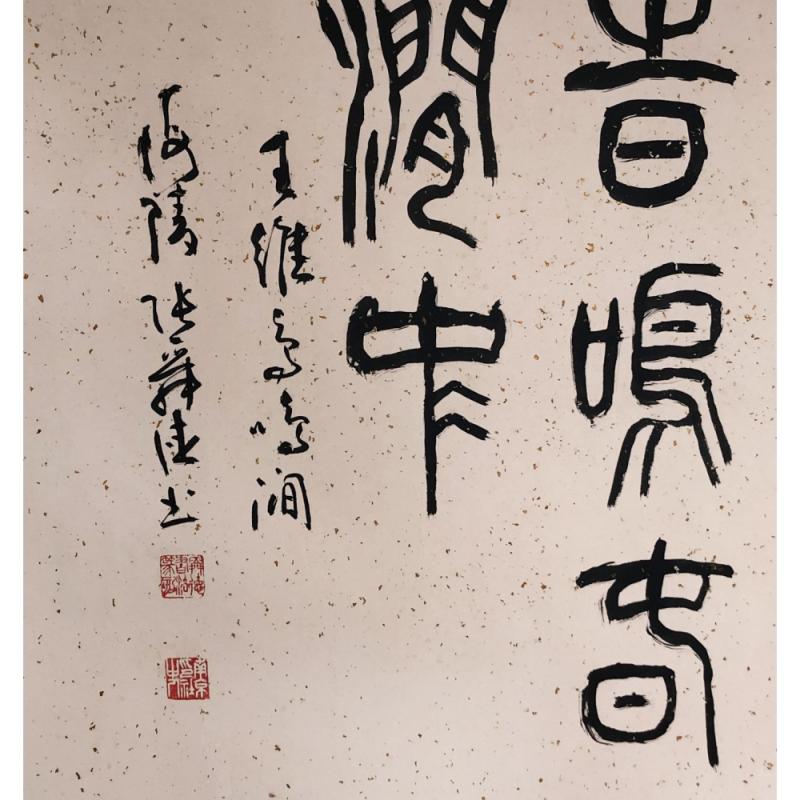 時鳴春
澗中
王維鳥鳴澗
海陵張舜德書